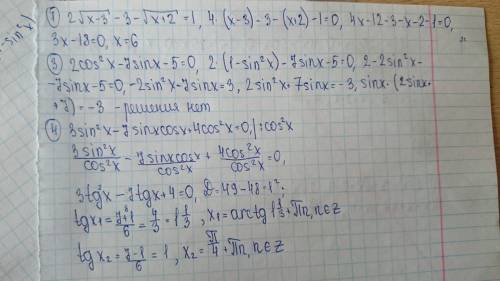 -sin²x)
① 2√x-3 - 3 - √x+2 = 1, 4·(x-3)-3-(x+2)-1=0, 4x-12-3-x-2-1=0,
3x-18=0, x=6
③ 2cos²x-7sinx-5=0, 2·(1-sin²x)-7sinx-5=0, 2-2sin²x-
-7sinx-5=0, -2sin²x-7sinx=3, 2sin²x+7sinx=-3, sinx·(2sinx+
+7)=-3 - решения нет
④ 3sin²x-7sinxcosx+4cos²x=0,|:cos²x
3sin²x/cos²x - 7sinxcosx/cos²x + 4cos²x/cos²x = 0,
3tg²x-7tgx+4=0, D=49-48=1².
tgx₁=7+1/6=4/3=1 1/3, x₁=arctg 1 1/3+πn, n∈z
tgx₂=7-1/6=1, x₂=π/4+πn, n∈z